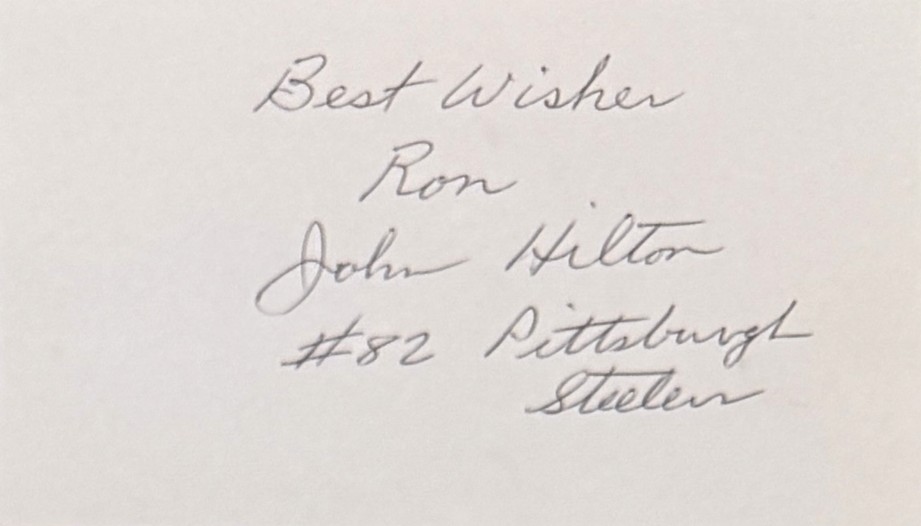 Best Wishes
Ron
John Hilton
#82 Pittsburgh
Steelers